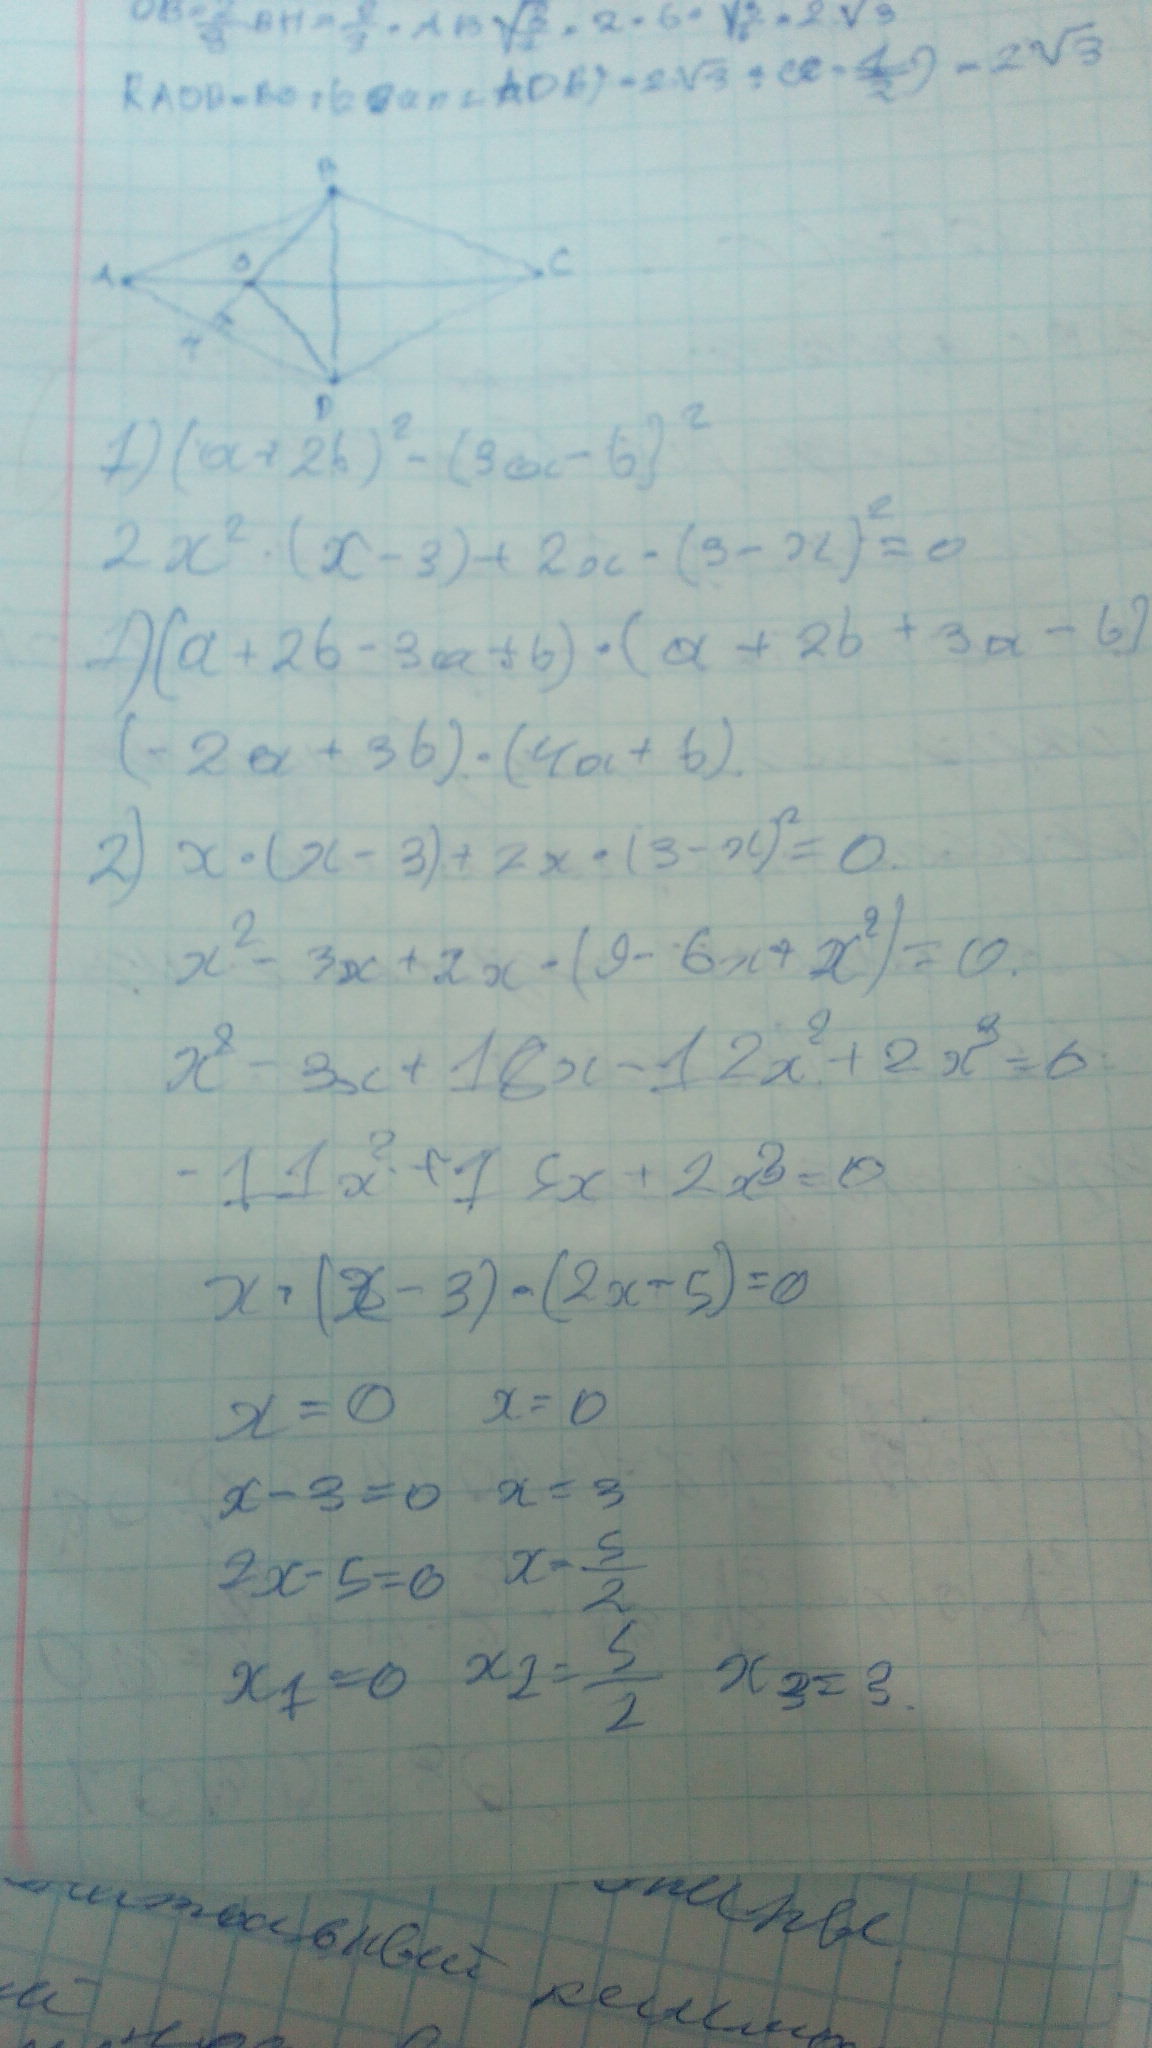 OB = 2/3 BH = 2/3 · AB √3/2 = 2 · 6 · √3/2 = 2√3
= 2√3
B
A O C
D
1) (a + 2b)² - (3a - b)²
2x² · (x - 3) + 2x · (3 - x)² = 0
1) (a + 2b - 3a + b) · (a + 2b + 3a - b)
(-2a + 3b) · (4a + b).
2) x · (x - 3) + 2x · (3 - x)² = 0.
x² - 3x + 2x · (9 - 6x + x²) = 0.
x² - 3x + 18x - 12x² + 2x³ = 0.
-11x² + 15x + 2x³ = 0
x · (x - 3) · (2x - 5) = 0
x = 0 x = 0
x - 3 = 0 x = 3
2x - 5 = 0 x = 5/2
x1 = 0 x2 = 5/2 x3 = 3.